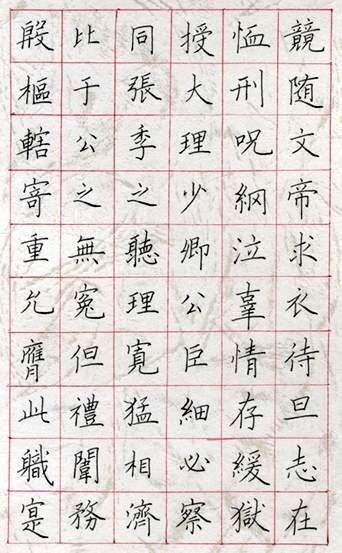 競随文帝求衣待旦志在
恤刑呪網泣辜情存緩獄
授大理少卿公臣細必察
同張季之聽理寛猛相濟
比于公之無冤但禮闈務
殷樞轄寄重允膺此職寔